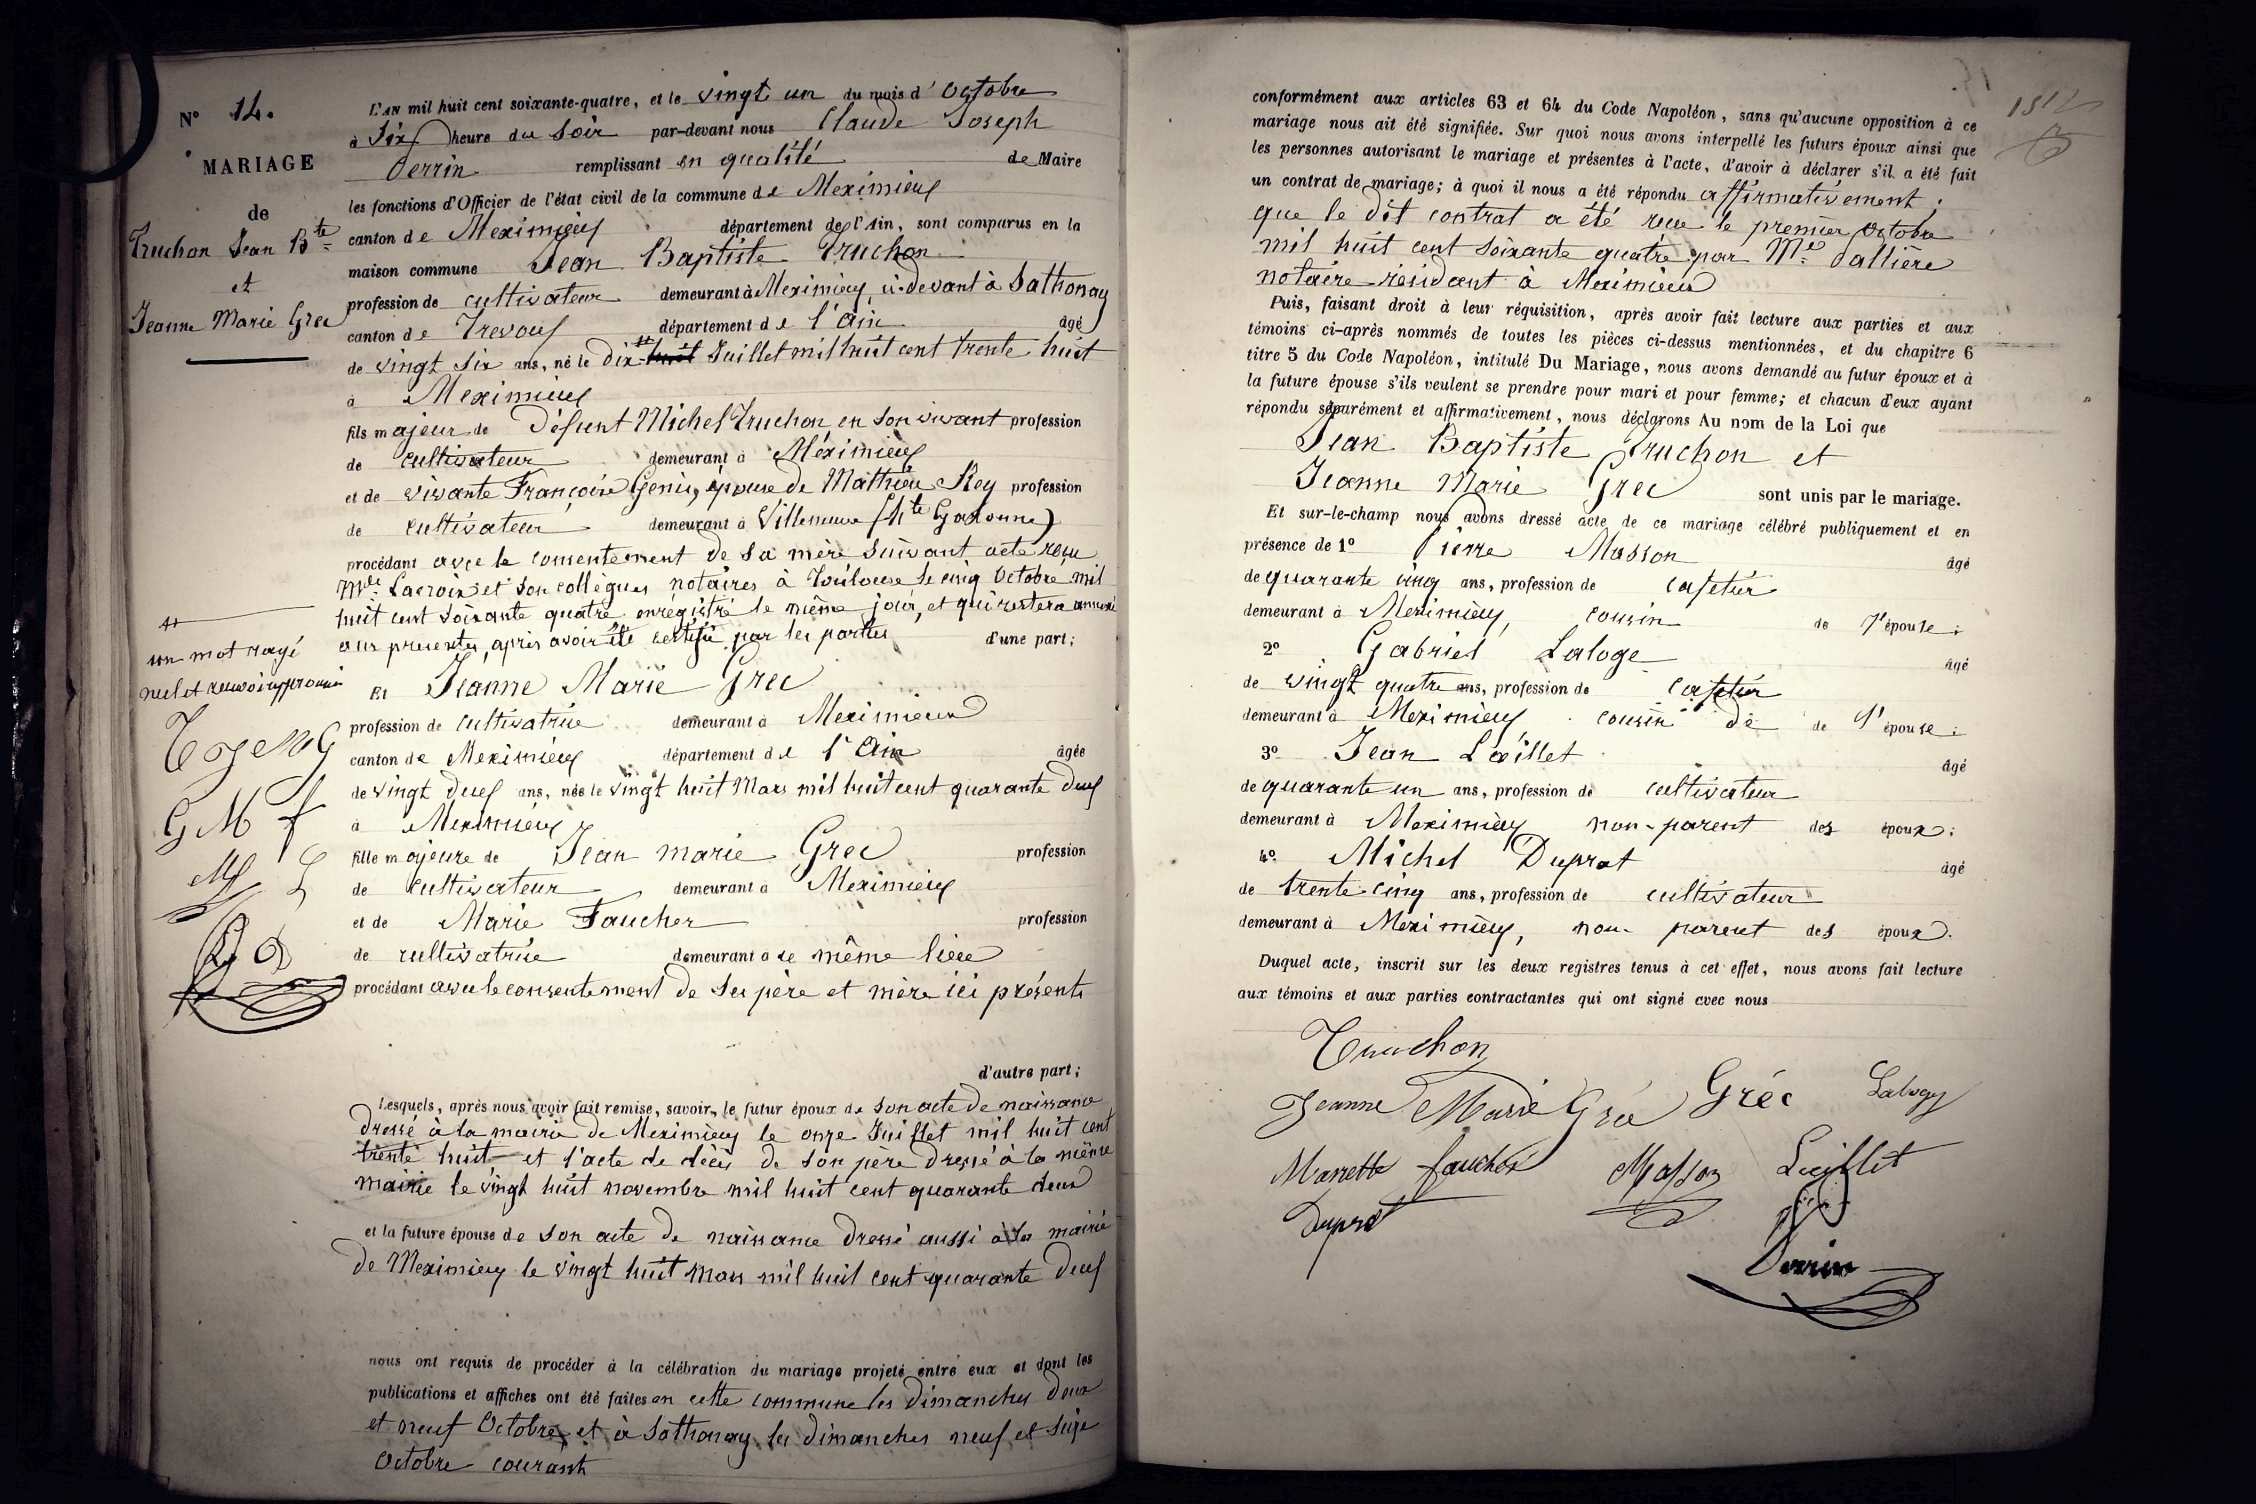 N° 14.
MARIAGE
de
Truchon Jean Bte
et
Jeanne Marie Grec
L'AN mil huit cent soixante-quatre, et le vingt un du mois d'octobre
à Six heure du Soir par-devant nous Claude Joseph
Perrin remplissant en qualité de Maire
les fonctions d'Officier de l'état civil de la commune de Meximieux
canton de Meximieux département de l'Ain, sont comparus en la
maison commune Jean Baptiste Truchon
profession de cultivateur demeurant à Meximieux, ci-devant à Sathonay
canton de Trevoux département de l'Ain âgé
de vingt six ans, né le dix huit Juillet mil huit cent trente huit
à Meximieux
fils majeur de Défunt Michel Truchon en son vivant profession
de cultivateur demeurant à Méximieux
et de vivante Françoise Genis, épouse de Mathieu Rey profession
de cultivateur demeurant à Villeneuve (hte Garonne)
procédant avec le consentement de sa mère suivant acte reçu
Me Lacroix et son collègues notaires à Toulouse le cinq Octobre mil
huit cent soixante quatre enregistré le même jour, et qui restera annexé
aux presentes, après avoir été certifié par les parties d'une part;
un mot rayé
nul et renvoi approuvé
T J M G
G M f
M L
Et Jeanne Marie Grec
profession de cultivatrice demeurant à Meximieux
canton de Meximieux département de l'Ain âgée
de vingt deux ans, née le vingt huit Mars mil huit cent quarante deux
à Meximieux
fille majeure de Jean marie Grec profession
de cultivateur demeurant à Meximieux
et de Marie Faucher profession
de cultivatrice demeurant à ce même lieu
procédant avec le consentement de ses père et mère ici présents
d'autre part;
Lesquels, après nous avoir fait remise, savoir, le futur époux de son acte de naissance
dressé à la mairie de Meximieux le onze Juillet mil huit cent
trente huit et l'acte de décès de son père dressé à la même
mairie le vingt huit novembre mil huit cent quarante deux
et la future épouse de son acte de naissance dressé aussi à la mairie
de Meximieux le vingt huit mars mil huit cent quarante deux
nous ont requis de procéder à la célébration du mariage projeté entre eux et dont les
publications et affiches ont été faites en cette commune les dimanches deux
et neuf Octobre, et à Sathonay les dimanches neuf et seize
Octobre courant
conformément aux articles 63 et 64 du Code Napoléon, sans qu'aucune opposition à ce
mariage nous ait été signifiée. Sur quoi nous avons interpellé les futurs époux ainsi que
les personnes autorisant le mariage et présentes à l'acte, d'avoir à déclarer s'il a été fait
un contrat de mariage; à quoi il nous a été répondu affirmativement,
que le dit contrat a été reçu le premier octobre
mil huit cent soixante quatre par Me
notaire résidant à Meximieux
Puis, faisant droit à leur réquisition, après avoir fait lecture aux parties et aux
témoins ci-après nommés de toutes les pièces ci-dessus mentionnées, et du chapitre 6
titre 5 du Code Napoléon, intitulé Du Mariage, nous avons demandé au futur époux et à
la future épouse s'ils veulent se prendre pour mari et pour femme; et chacun d'eux ayant
répondu séparément et affirmativement, nous déclarons Au nom de la Loi que
Jean Baptiste Truchon et
Jeanne Marie Grec sont unis par le mariage.
Et sur-le-champ nous avons dressé acte de ce mariage célébré publiquement et en
présence de 1° Pierre Masson âgé
de quarante cinq ans, profession de cafetier
demeurant à Meximieux, cousin de l'épouse;
2° Gabriel Laloge âgé
de vingt quatre ans, profession de Cafetier
demeurant à Meximieux cousin de de l'épouse;
3° Jean Lœillet âgé
de quarante un ans, profession de cultivateur
demeurant à Meximieux non-parent des époux;
4° Michel Duprat âgé
de trente-cinq ans, profession de cultivateur
demeurant à Meximieux, non-parent des époux.
Duquel acte, inscrit sur les deux registres tenus à cet effet, nous avons fait lecture
aux témoins et aux parties contractantes qui ont signé avec nous
Truchon
Jeanne Marie Gréc Gréc Laloge
Mariette faucher Masson Lœillet
Duprat
Perrin